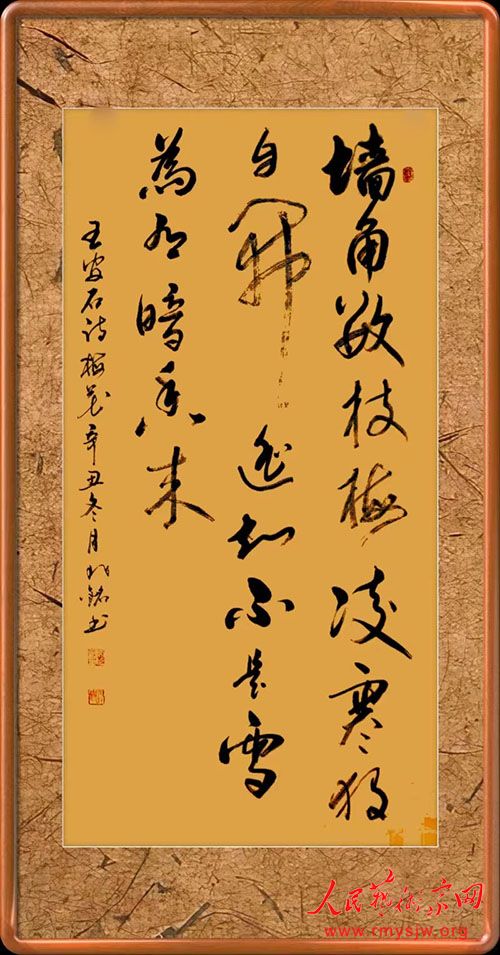 墙角数枝梅凌寒独
自開遥知不是雪
為有暗香来
王安石诗梅花辛丑冬月铭书
人民藝術家网
www.rmysjw.org